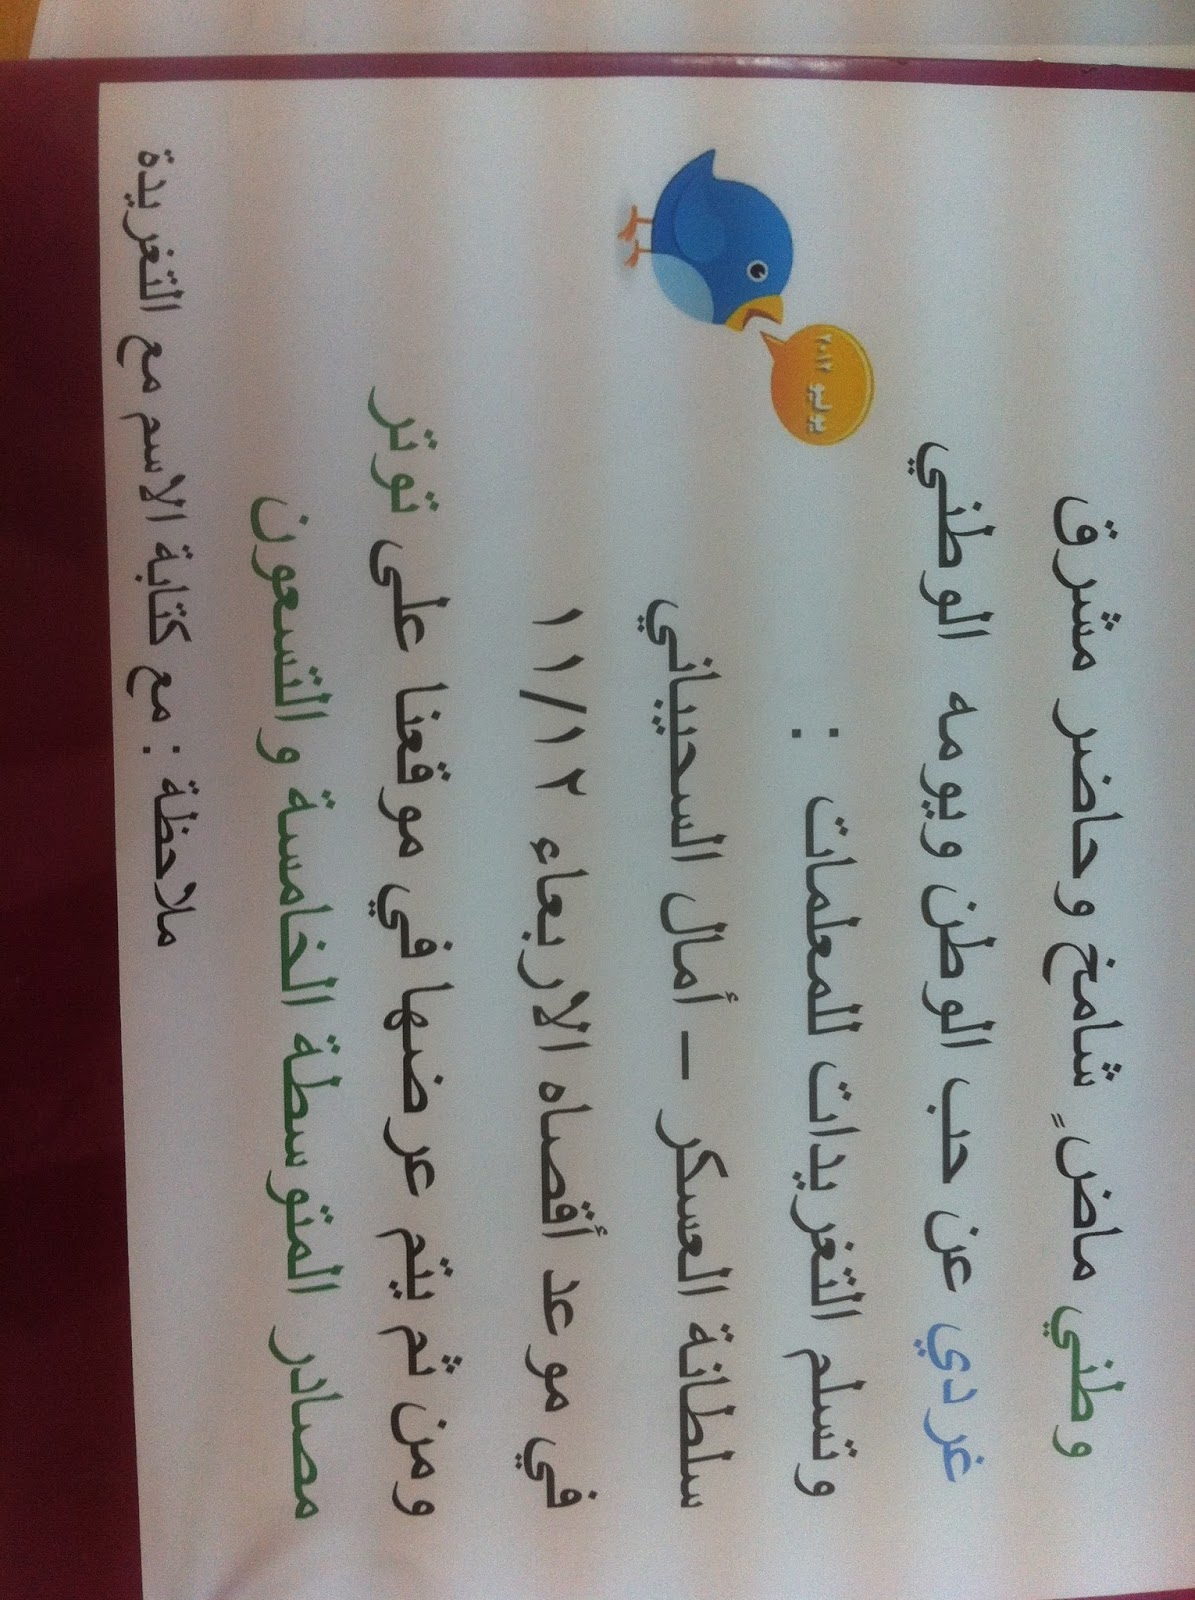 وطني ماضٍ شامخ وحاضر مشرق
غردي عن حب الوطن ويومه الوطني
وتسلم التغريدات للمعلمات :
سلطانة العسكر – أمال السحيباني
في موعد أقصاه الاربعاء ١١/١٢
ومن ثم يتم عرضها في موقعنا على توتر
مصادر المتوسطة الخامسة والتسعون
ملاحظة : مع كتابة الاسم مع التغريدة
يوليو ٢٠١٢